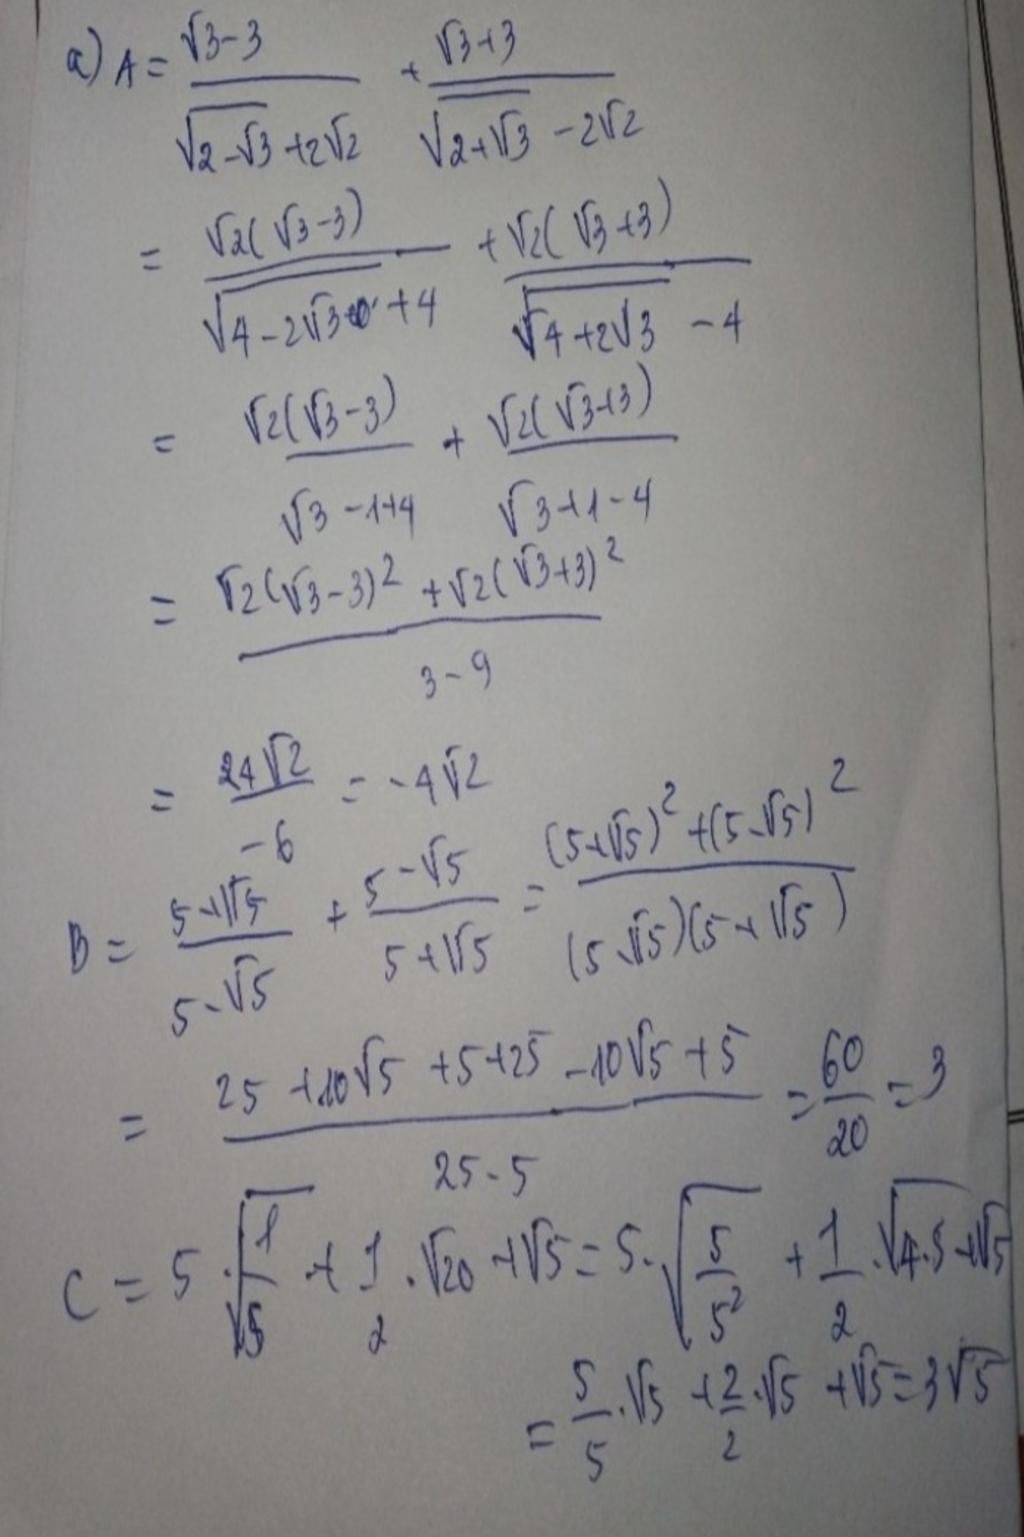 a) A = (√3-3)/(√(2-√3)+2√2) + (√3+3)/(√(2+√3)-2√2)
= √2(√3-3)/(√(4-2√3)+4) + √2(√3+3)/(√(4+2√3)-4)
= √2(√3-3)/(√3-1+4) + √2(√3+3)/(√3+1-4)
= (√2(√3-3)²+√2(√3+3)²)/(3-9)
= 24√2/-6 = -4√2
B = (5+√5)/(5-√5) + (5-√5)/(5+√5) = ((5+√5)²+(5-√5)²)/((5-√5)(5+√5))
= (25+10√5+5+25-10√5+5)/(25-5) = 60/20 = 3
C = 5·√(1/5) + 1/2·√20+√5 = 5·√(5/5²) + 1/2·√(4·5)+√5
= 5/5·√5 + 2/2·√5 + √5 = 3√5